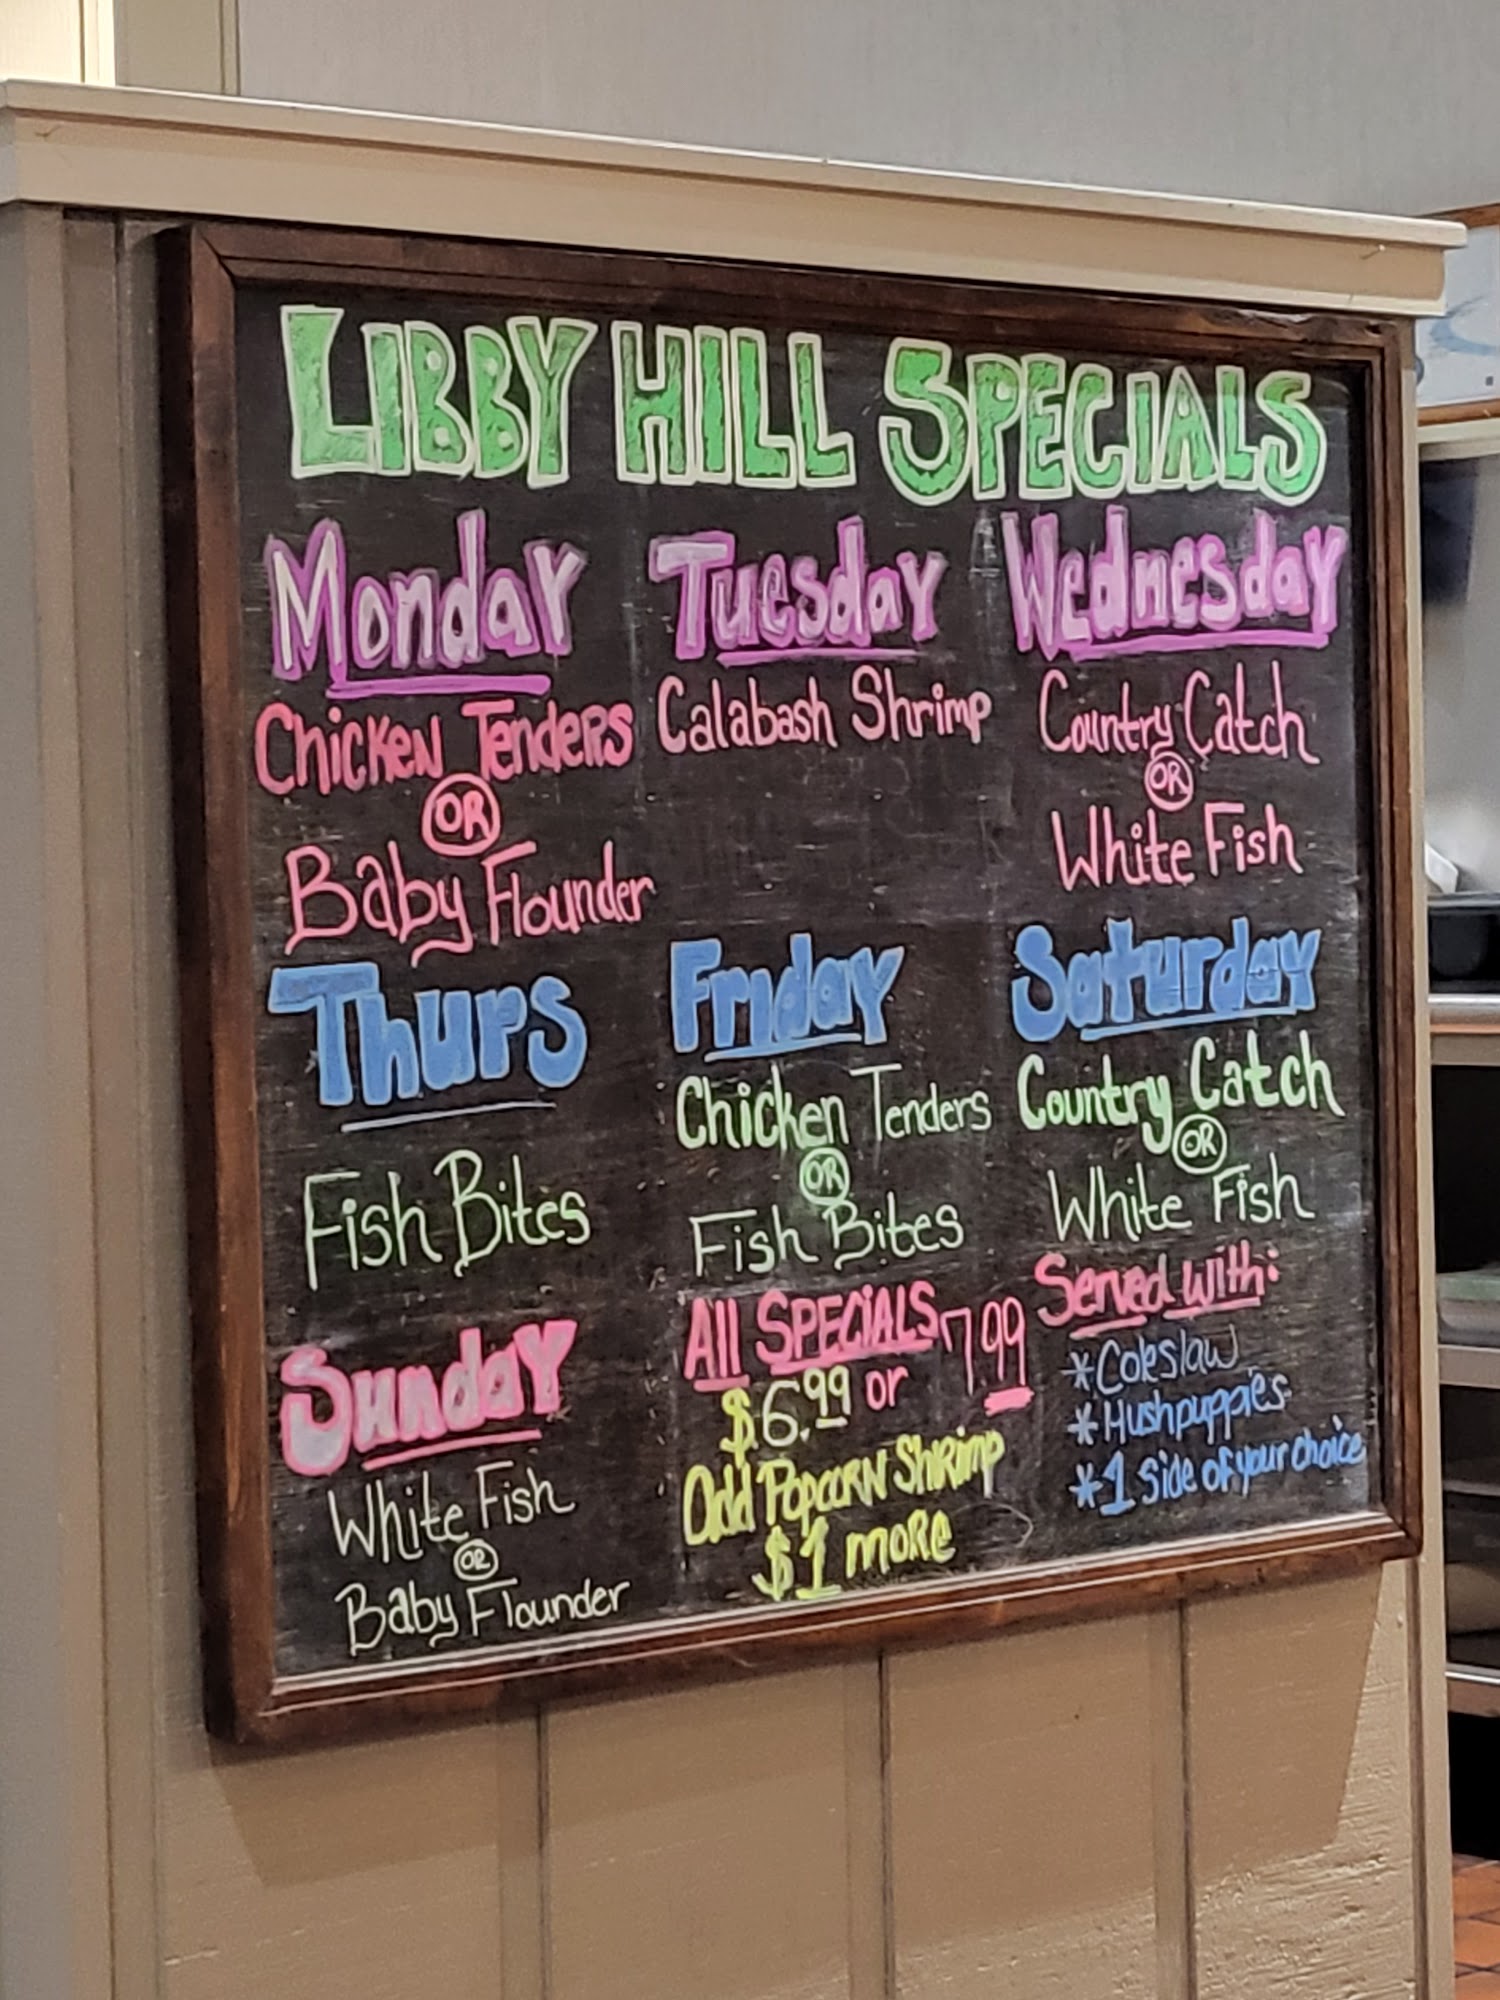 LIBBY HILL SPECIALS
Monday
Chicken Tenders
OR
Baby Flounder
Tuesday
Calabash Shrimp
Wednesday
Country Catch
OR
White Fish
Thurs
Fish Bites
Friday
Chicken Tenders
OR
Fish Bites
Saturday
Country Catch
OR
White Fish
Sunday
White Fish
OR
Baby Flounder
All SPECIALS
$6.99 or 7.99
Add Popcorn Shrimp
$1 more
Served with:
*Coleslaw
*Hushpuppies
*1 side of your choice